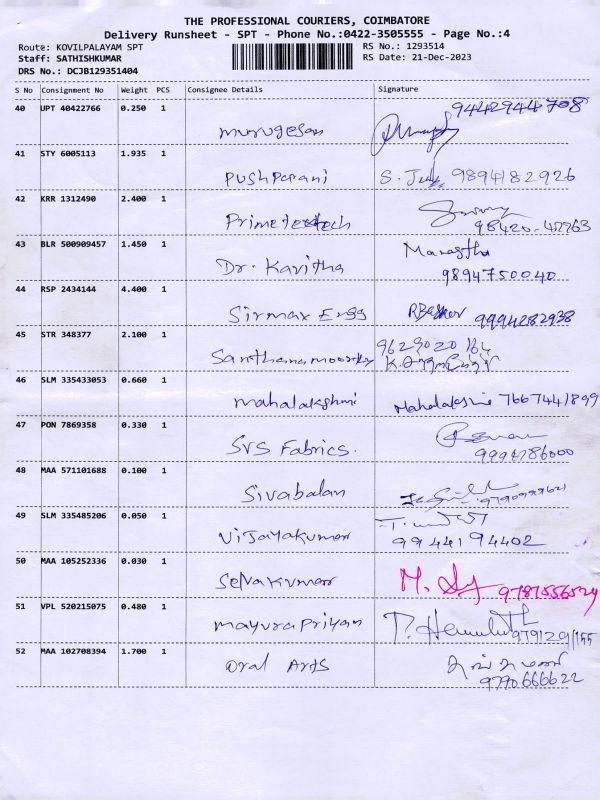 THE PROFESSIONAL COURIERS, COIMBATORE
Delivery Runsheet - SPT - Phone No.:0422-3505555 - Page No.:4
Route: KOVILPALAYAM SPT
RS No.: 1293514
Staff: SATHISHKUMAR
RS Date: 21-Dec-2023
DRS No.: DCJB129351404
S No Consignment No Weight PCS Consignee Details Signature
40 UPT 40422766 0.250 1 murugesan 9442944708
41 STY 6005113 1.935 1 Pushparani S. 9894182926
42 KRR 1312490 2.400 1
43 BLR 500909457 1.450 1 Dr. Kavitha 9894750040
44 RSP 2434144 4.400 1 Sirmax Engg 9994282938
45 STR 348377 2.100 1 Santhanamoorthy 9629020164
46 SLM 335433053 0.660 1 mahalakshmi Mahalakshmi 7667441899
47 PON 7869358 0.330 1 SVS Fabrics. 9994786000
48 MAA 571101688 0.100 1 Sivabalan
49 SLM 335485206 0.050 1 Vijayakumar 9944194402
50 MAA 105252336 0.030 1 Selvakumar M. 9787556529
51 VPL 520215075 0.480 1 mayurapriyan
52 MAA 102708394 1.700 1 Oral Arts 9790666622